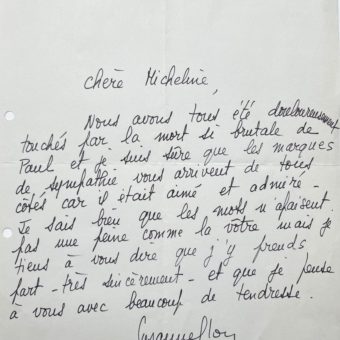 Chère Micheline,
Nous avons tous été douloureusement
touchés par la mort si brutale de
Paul et je suis sûre que les marques
de sympathie vous arrivent de tous
côtés car il était aimé et admiré -
Je sais bien que les mots n'apaisent
pas une peine comme la vôtre mais je
tiens à vous dire que j'y prends
part - très sincèrement - et que je pense
à vous avec beaucoup de tendresse.